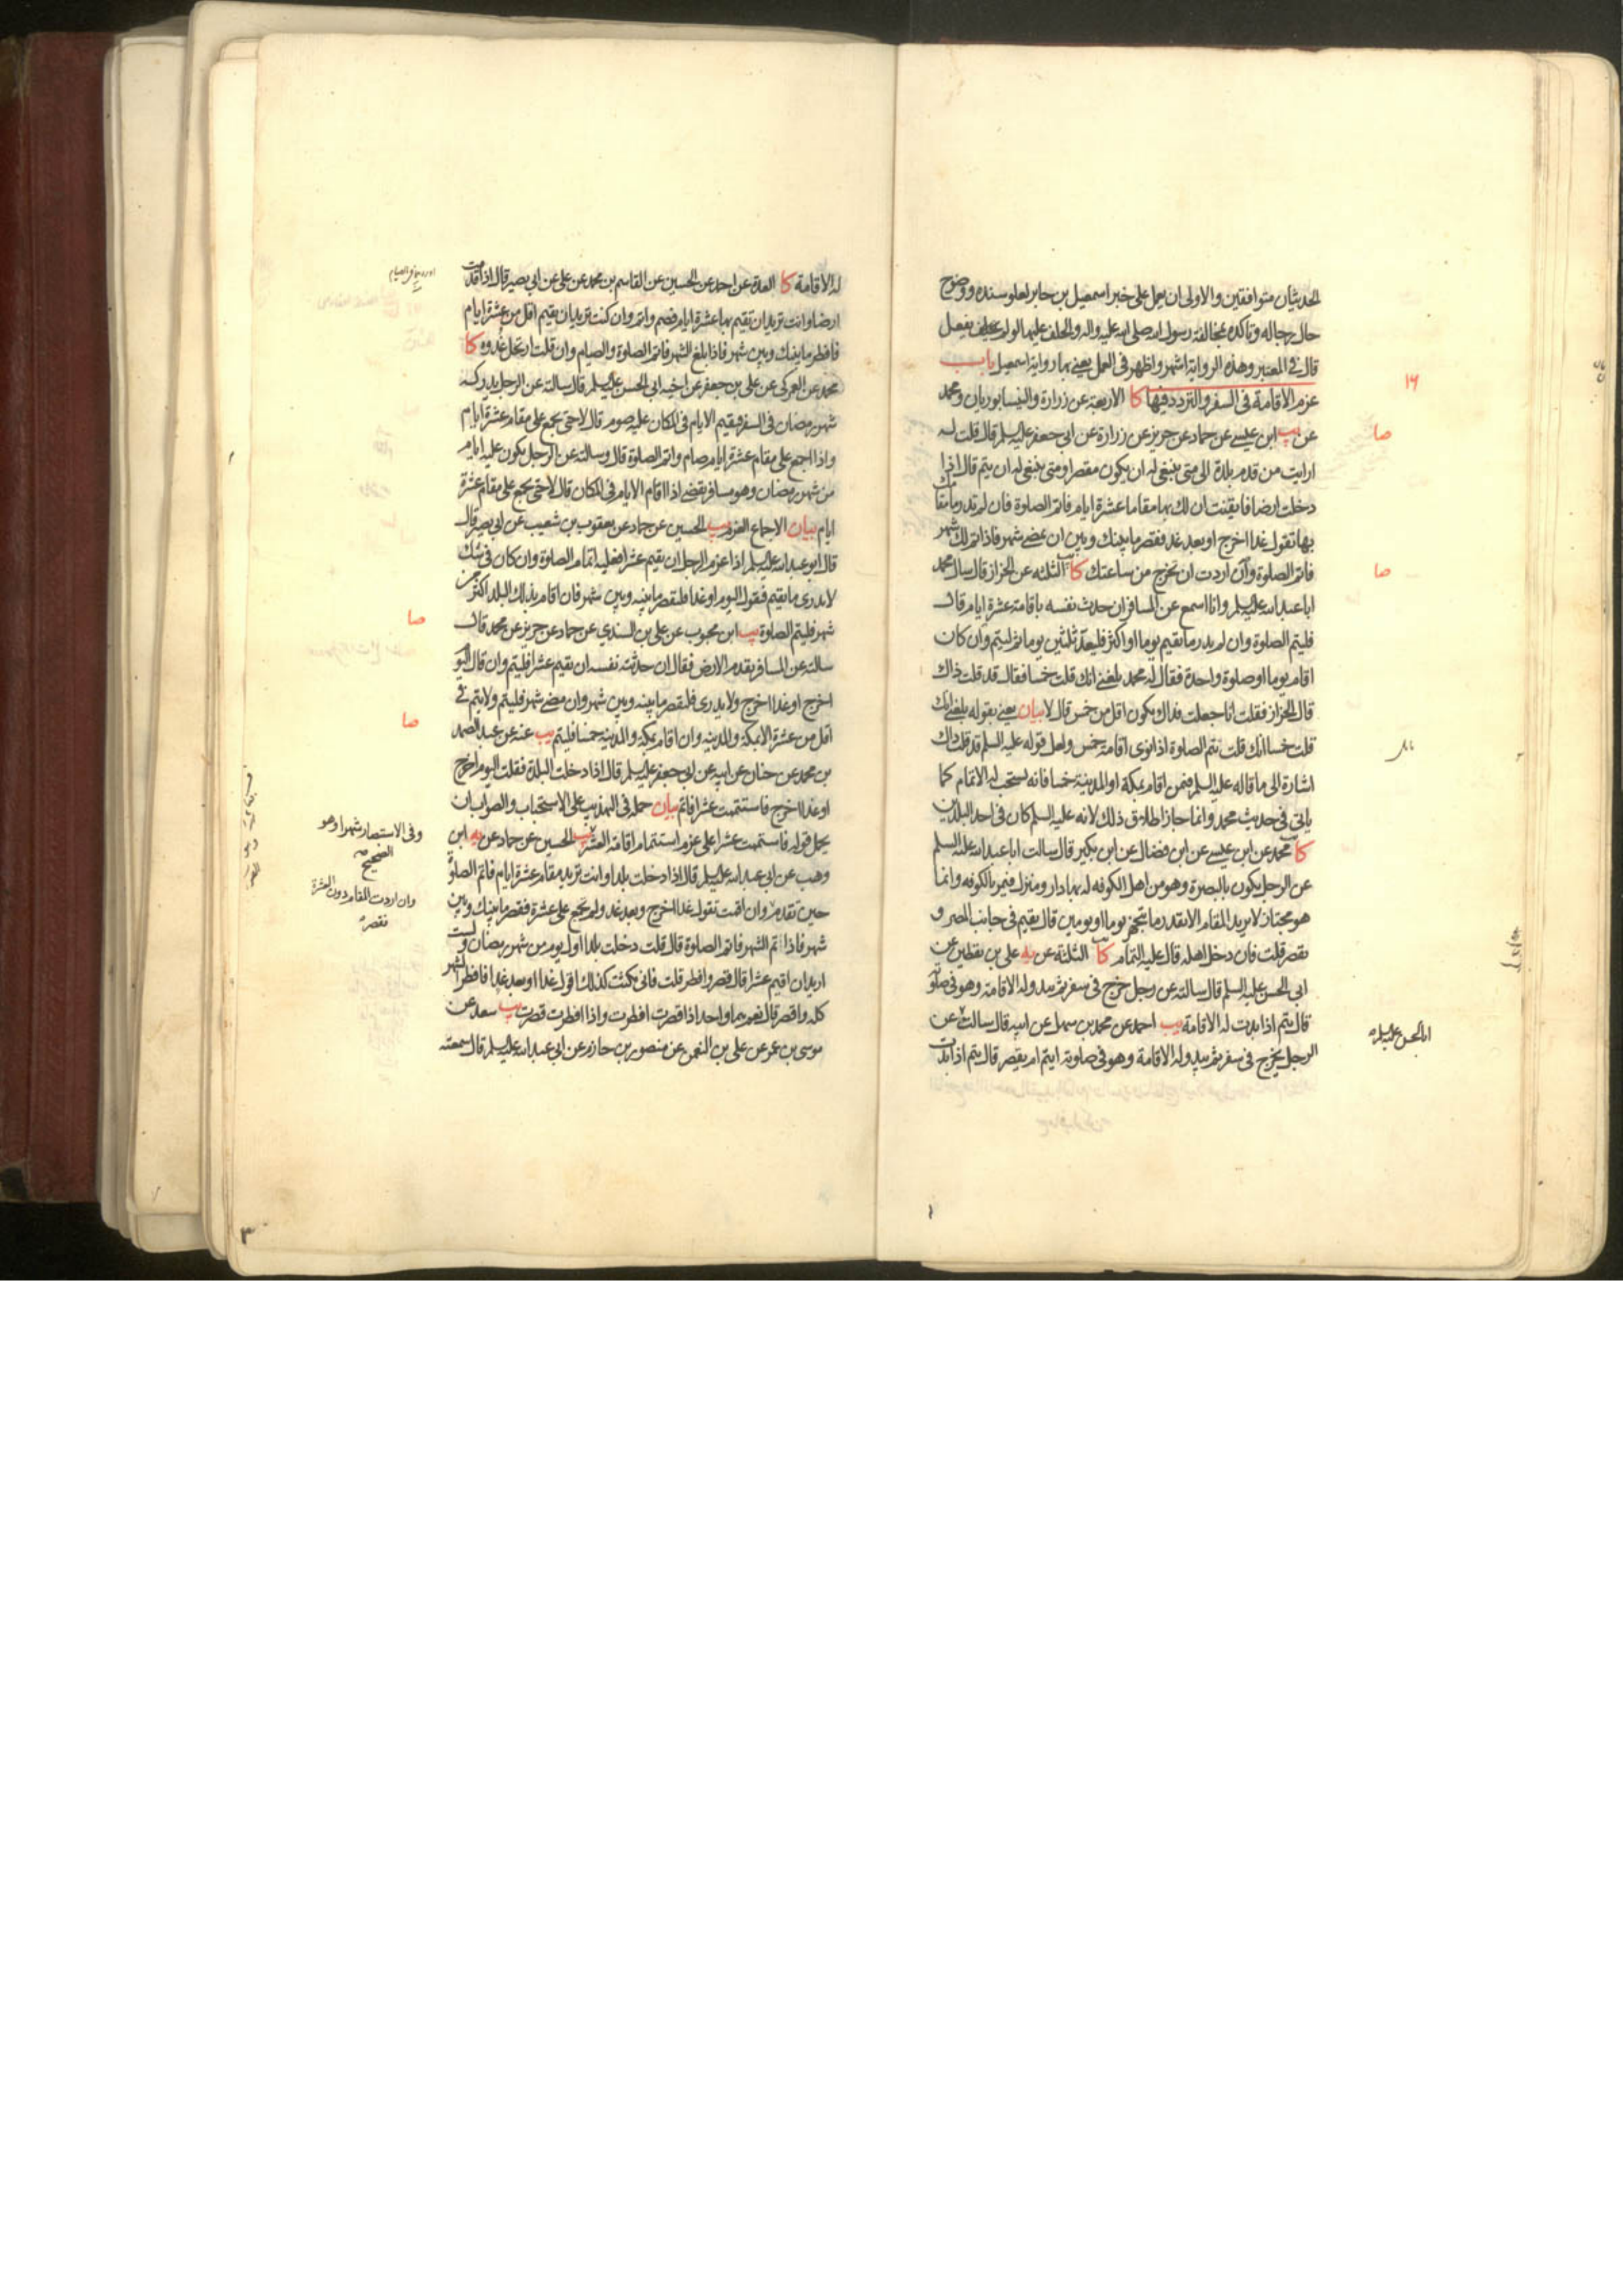 الحديثان متوافقين والاولى ان يعمل على خبر اسمعيل بن جابر لعلو سنده ووضوح
حال رجاله وتاكده بمخالفة رسول الله صلى الله عليه واله والحلف عليها لو لم يفعل
قال في المعتبر وهذه الرواية اشهر واظهر في العمل يعني بها رواية اسمعيل باب
عزم الاقامة في السفر والتردد فيها كا الاربعة عن زرارة والنيسابوريان ومحمد
عن يب ابن عيسى عن حماد عن حريز عن زرارة عن ابي جعفر عليه السلم قال قلت له
ارايت من قدم بلدة الى متى ينبغي له ان يكون مقصرا ومتى ينبغي له ان يتم قال اذا
دخلت ارضا فايقنت ان لك بها مقاما عشرة ايام فاتم الصلوة فان لم تدر ما مقامك
بها تقول غدا اخرج او بعد غد فقصر ما بينك وبين ان يمضي شهر فاذا تم لك شهر
فاتم الصلوة وان اردت ان تخرج من ساعتك كا الثلثة عن الخراز قال سال محمد
ابا عبد الله عليه السلم وانا اسمع عن المسافر ان حدث نفسه باقامة عشرة ايام قال
فليتم الصلوة وان لم يدر ما يقيم يوما او اكثر فليعد ثلثين يوما ثم ليتم وان كان
اقام يوما او صلوة واحدة فقال له محمد بلغني انك قلت خمسا فقال قد قلت ذاك
قال الخراز فقلت انا جعلت فداك يكون اقل من خمس قال لا بيان يعني بقوله بلغني انك
قلت خمسا انك قلت يتم الصلوة اذا نوى اقامة خمس ولعل قوله عليه السلم قد قلت ذاك
اشارة الى ما قاله عليه السلم فيمن اقام بمكة او المدينة خمسا فانه يستحب له الاتمام كما
ياتي في حديث محمد وانما جاز اطلاق ذلك لانه عليه السلم كان في احد البلدين
كا محمد عن ابن عيسى عن ابن فضال عن ابن بكير قال سالت ابا عبد الله عليه السلم
عن الرجل يكون بالبصرة وهو من اهل الكوفه له بها دار ومنزل فيمر بالكوفه وانما
هو مجتاز لا يريد المقام الا بقدر ما يتجهز يوما او يومين قال يقيم في جانب المصر و
يقصر قلت فان دخل اهله قال عليه التمام كا الثلثة عن يه علي بن يقطين عن
ابي الحسن عليه السلم قال سالته عن رجل خرج في سفر ثم يبدو له الاقامة وهو في صلوته
قال يتم اذا بدت له الاقامة يب احمد عن محمد بن سهل عن ابيه قال سالت عن
الرجل يخرج في سفر ثم يبدو له الاقامة وهو في صلوته ايتم ام يقصر قال يتم اذا بدت
١٦
صا
صا
ابا الحسن عليه السلم
له الاقامة كا العدة عن احمد عن الحسين عن القاسم بن محمد عن علي عن ابي بصير قال اذا قدمت
ارضا وانت تريد ان تقيم بها عشرة ايام فصم واتم وان كنت تريد ان تقيم اقل من عشرة ايام
فافطر ما بينك وبين شهر فاذا بلغ الشهر فاتم الصلوة والصيام وان قلت ارتحل غدوة كا
محمد عن العمركي عن علي بن جعفر عن اخيه ابي الحسن عليه السلم قال سالته عن الرجل يدركه
شهر رمضان في السفر فيقيم الايام في المكان عليه صوم قال لا حتى يجمع على مقام عشرة ايام
واذا اجمع على مقام عشرة ايام صام واتم الصلوة قال وسالته عن الرجل يكون عليه ايام
من شهر رمضان وهو مسافر يقضي اذا اقام الايام في المكان قال لا حتى يجمع على مقام عشرة
ايام بيان الاجماع العزم يب الحسين عن حماد عن يعقوب بن شعيب عن ابي بصير قال
قال ابو عبد الله عليه السلم اذا عزم الرجل ان يقيم عشرا فعليه اتمام الصلوة وان كان في شك
لا يدري ما يقيم فيقول اليوم او غدا فليقصر ما بينه وبين شهر فان اقام بذلك البلد اكثر من
شهر فليتم الصلوة يب ابن محبوب عن علي بن السندي عن حماد عن حريز عن محمد قال
سالته عن المسافر يقدم الارض فقال ان حدثته نفسه ان يقيم عشرا فليتم وان قال اليوم
اخرج او غدا اخرج ولا يدري فليقصر ما بينه وبين شهر وان مضى شهر فليتم ولا يتم في
اقل من عشرة الا بمكة والمدينة وان اقام بمكة والمدينة خمسا فليتم يب عنه عن عبد الصمد
بن محمد عن حنان عن ابيه عن ابي جعفر عليه السلم قال اذا دخلت البلدة فقلت اليوم اخرج
او غدا اخرج فاستتممت عشرا فاتم بيان حمله في التهذيب على الاستحباب والصواب ان
يحمل قوله فاستتممت عشرا على عزم استتمام اقامة العشر يب الحسين عن حماد عن يه ابن
وهب عن ابي عبد الله عليه السلم قال اذا دخلت بلدا وانت تريد مقام عشرة ايام فاتم الصلوة
حين تقدم وان اقمت تقول غدا اخرج وبعد غد ولم تجمع على عشرة فقصر ما بينك وبين
شهر فاذا تم الشهر فاتم الصلوة قال قلت دخلت بلدا اول يوم من شهر رمضان ولست
اريد ان اقيم عشرا قال قصر وافطر قلت فاني مكثت كذلك اقول غدا او بعد غد فافطر الشهر
كله واقصر قال نعم هما واحد اذا قصرت افطرت واذا افطرت قصرت يب سعد عن
موسى بن عمر عن علي بن النعمن عن منصور بن حازم عن ابي عبد الله عليه السلم قال سمعته
صا
صا
وفي الاستبصار شهرا وهو
الصحيح
وان اردت المقام دون العشرة
فقصر